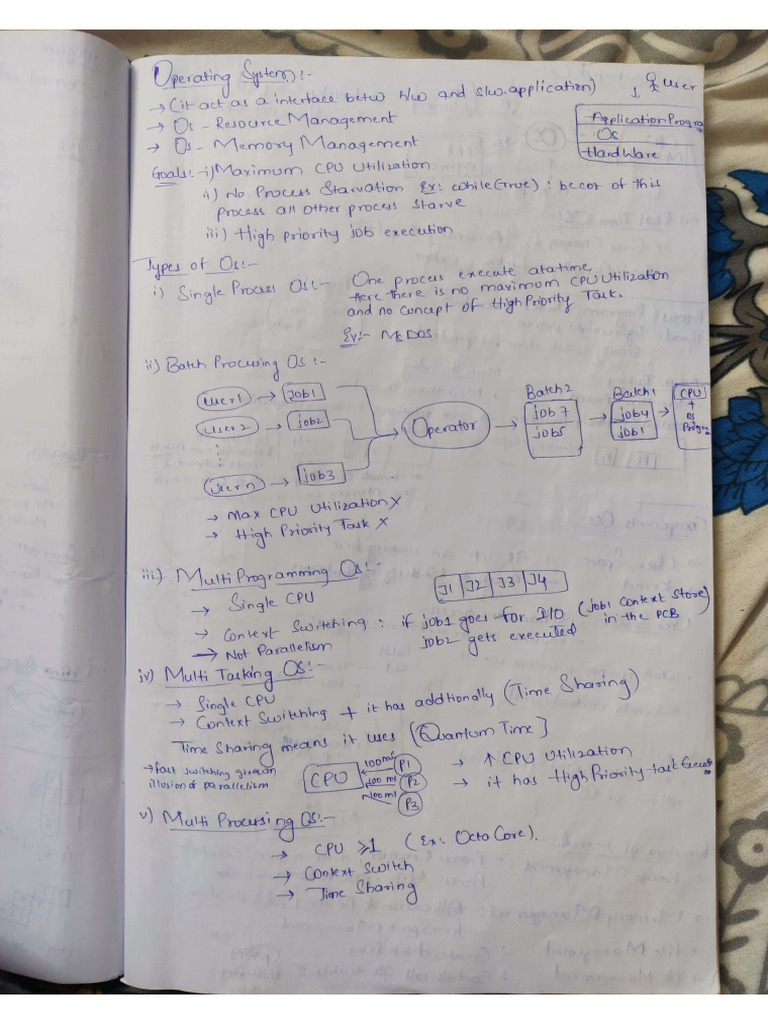 Operating System :-
→ (it act as a interface betw H/w and S/w. application)
User
→ Os - Resource Management
→ Os - Memory Management
Application Progra
Os
Hardware
Goals:- i) Maximum CPU Utilization
ii) No Process Starvation Ex: while(True) : becoz of this
process all other process starve
iii) High priority job execution
Types of Os:-
i) Single Process Os:- One process execute at a time
Here there is no maximum CPU Utilization
and no concept of High Priority Task.
Ex:- MS DOS
ii) Batch Processing Os :-
user1 → job1
user2 → job2
user n → job3
Operator
Batch 2
job 7
job5
Batch 1
job4
job1
CPU
+
os
Progra
→ Max CPU Utilization X
→ High Priority Task X
iii) Multi Programming Os:-
J1 J2 J3 J4
→ Single CPU
→ Context Switching : if job1 goes for I/O (Job1 Context Store)
in the PCB
job2 gets executed
→ Not Parallelism
iv) Multi Tasking OS:-
→ Single CPU
→ Context Switching + it has addtionally (Time Sharing)
Time Sharing means it uses (Quantum Time]
→ fast switching gives an
illusion of parallelism
CPU
100ms P1
100 ms P2
100ms P3
→ ↑ CPU Utilization
→ it has High Priority task
v) Multi Processing OS:-
→ CPU ≥1 (Ex: Octa Core).
→ Context Switch
→ Time Sharing